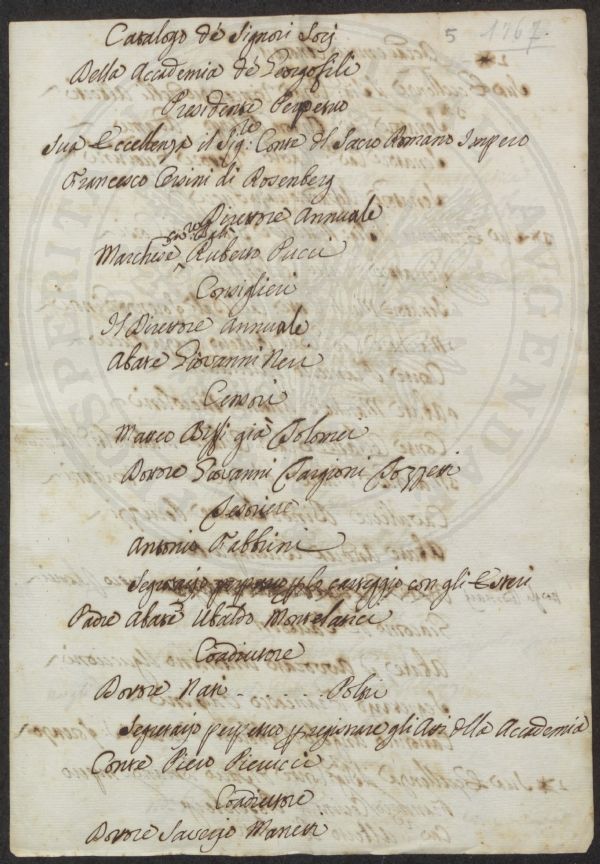 5 1767.
Catalogo de Signori Socj
Della Accademia de Georgofili
Presidente Perpetuo
Sua Eccellenza il Sig: Conte del Sacro Romano Impero
Francesco Orsini di Rosenberg
Direttore Annuale
Marchese Ruberto Pucci
Consiglieri
Il Direttore Annuale
Abate Giovanni Neri
Censori
Matteo Biffi già Tolomei
Dottore Giovanni Targioni Tozzetti
Tesoriere
Antonio Fabbrini
Segretario carteggio con gli Esteri
Padre Abate Ubaldo Montelatici
Coadiutore
Dottore
Segretario perpetuo p registrare gli Atti della Accademia
Conte Piero Pierucci
Coadiutore
Dottore Saverio Manetti
AUGENDAM